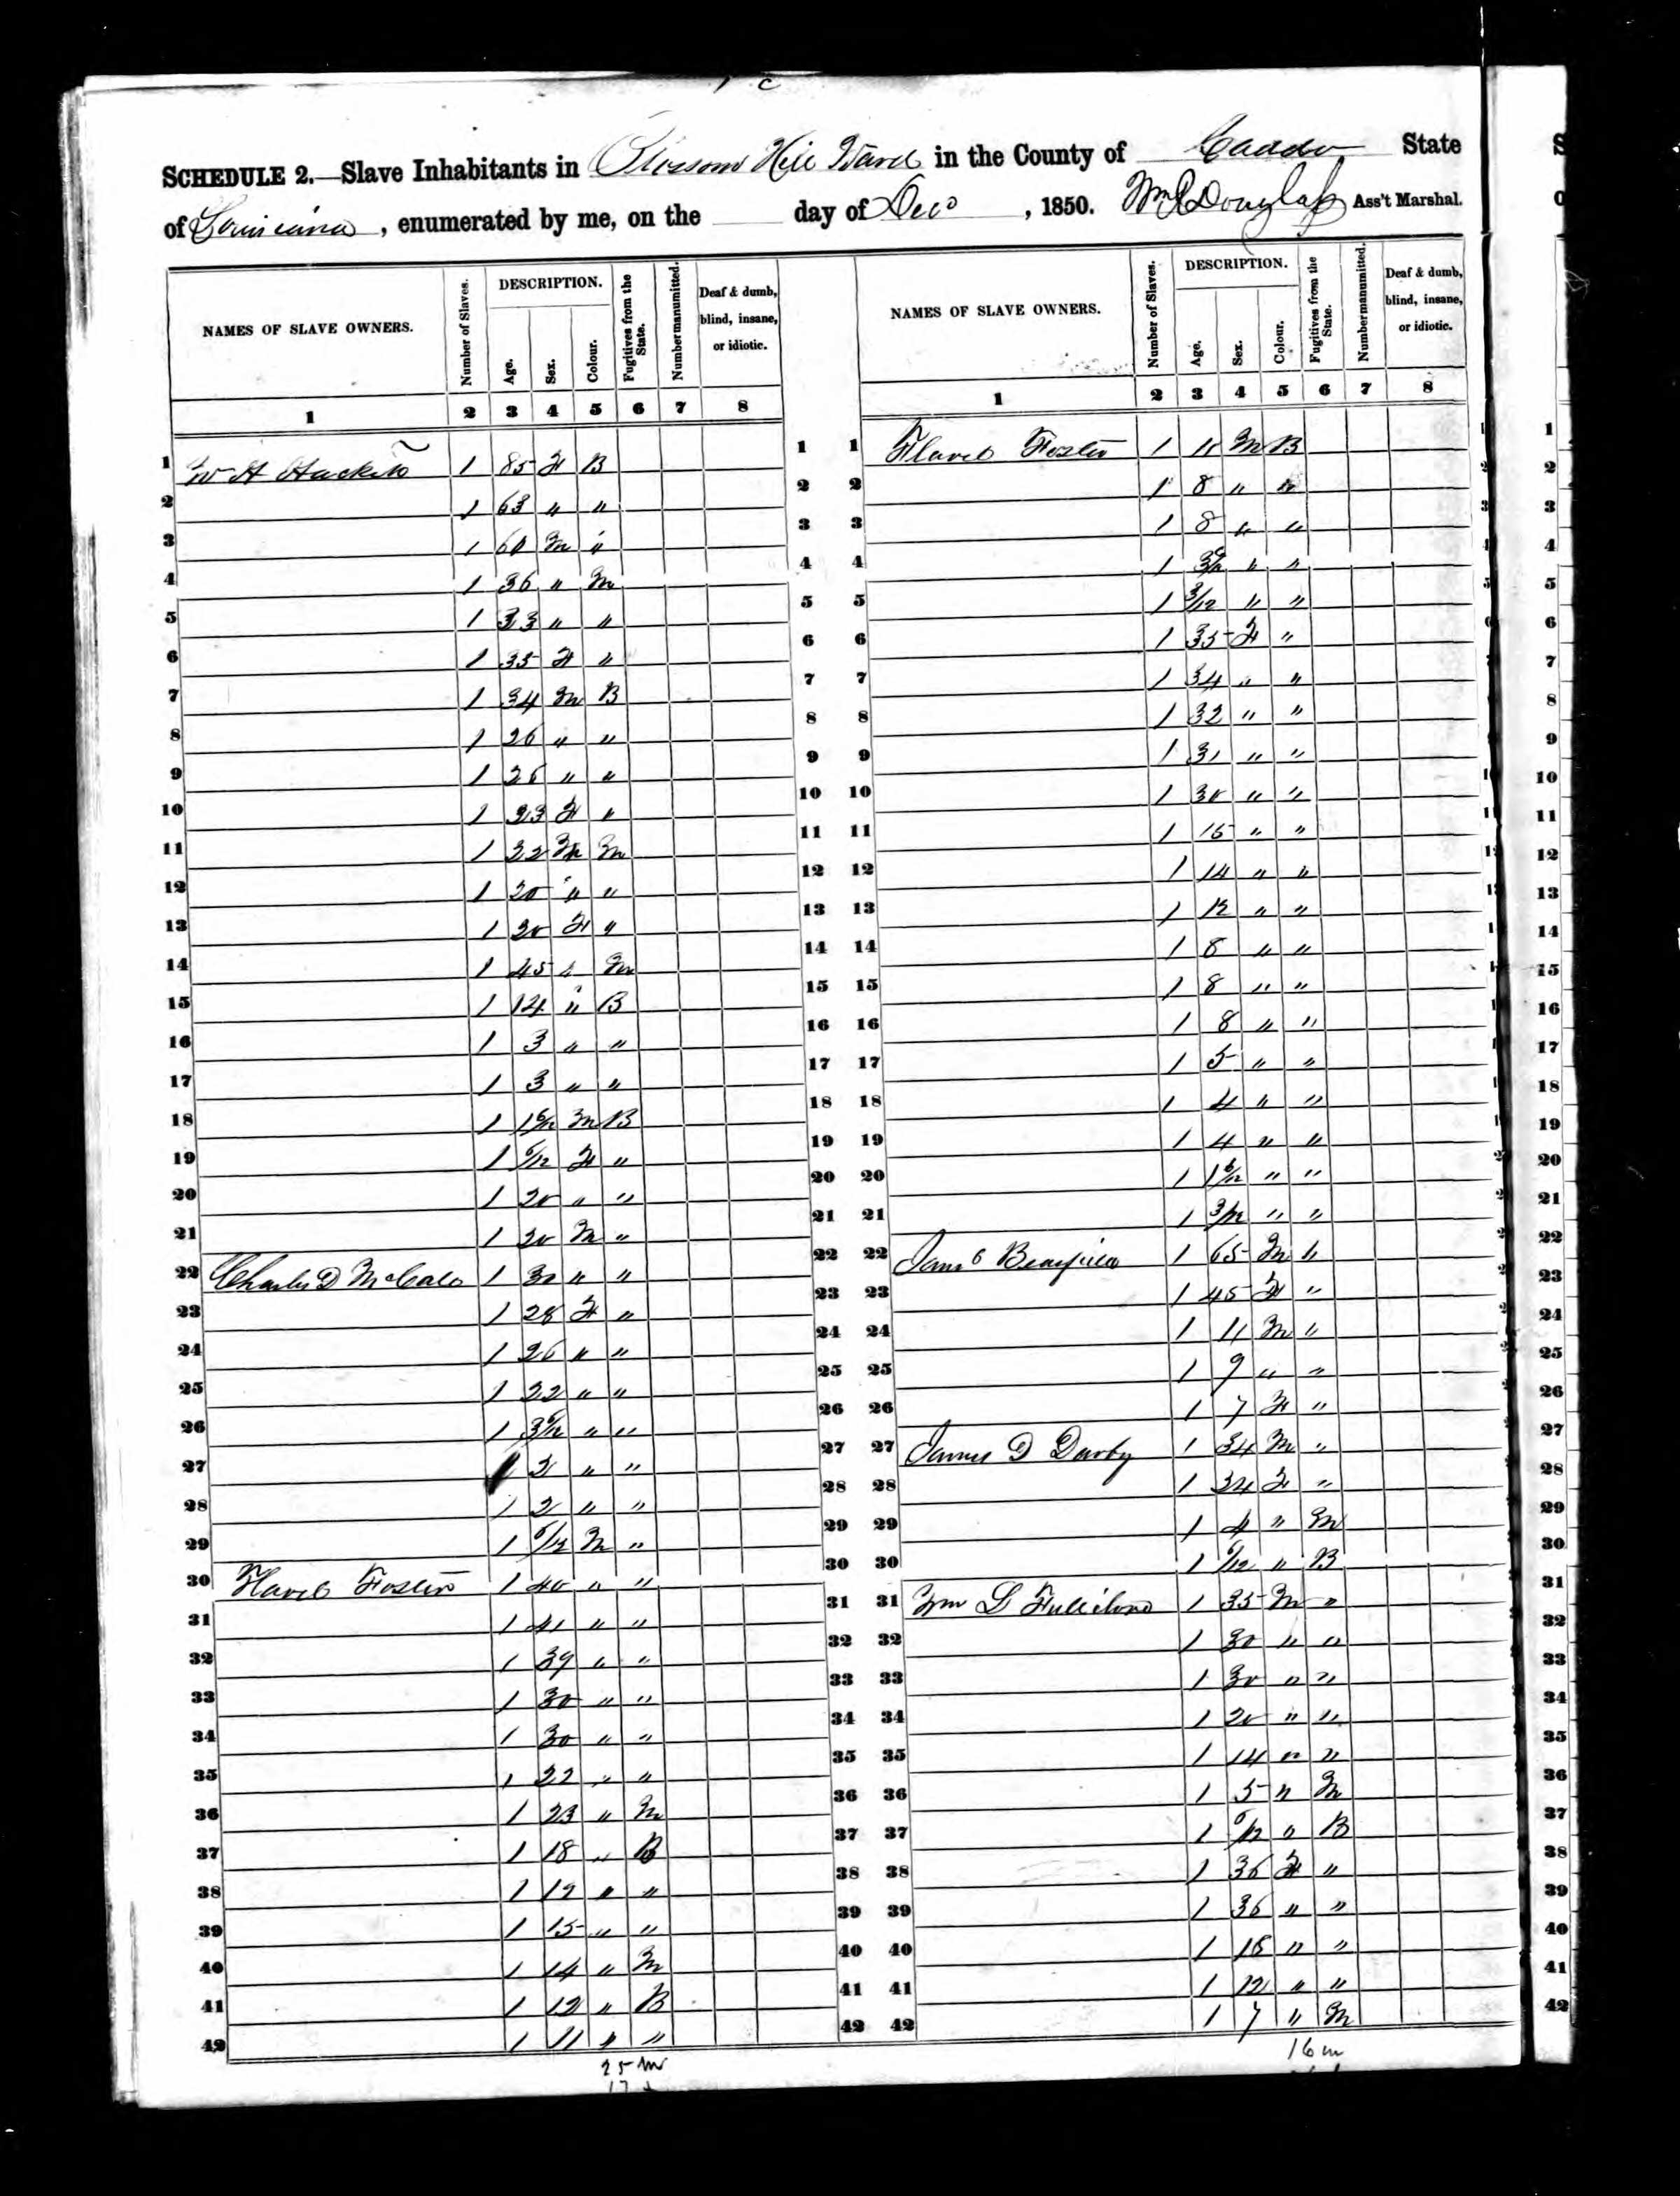 SCHEDULE 2.—Slave Inhabitants in Blossom Hill Ward in the County of Caddo State
of Louisiana, enumerated by me, on the day of Dec, 1850. Wm R Douglass Ass't Marshal.
NAMES OF SLAVE OWNERS. Number of Slaves. DESCRIPTION. Age. Sex. Colour. Fugitives from the State. Number manumitted. Deaf & dumb, blind, insane, or idiotic.
1 2 3 4 5 6 7 8
1 W H 1 85 F B 1
2 1 63 " " 2
3 1 60 M " 3
4 1 36 " M 4
5 1 33 " " 5
6 1 35 F " 6
7 1 34 M B 7
8 1 26 " " 8
9 1 26 " " 9
10 1 23 F " 10
11 1 22 M M 11
12 1 20 " " 12
13 1 20 F " 13
14 1 45 " M 14
15 1 14 " B 15
16 1 3 " " 16
17 1 3 " " 17
18 1 M B 18
19 1 6/12 F " 19
20 1 20 " " 20
21 1 20 M " 21
22 Charles D 1 30 " " 22
23 1 28 F " 23
24 1 26 " " 24
25 1 22 " " 25
26 1 " " 26
27 1 2 " " 27
28 1 2 " " 28
29 1 6/12 M " 29
30 Flavel Foster 1 40 " " 30
31 1 41 " " 31
32 1 39 " " 32
33 1 30 " " 33
34 1 30 " " 34
35 1 22 " " 35
36 1 23 " M 36
37 1 18 " B 37
38 1 12 " " 38
39 1 15 " " 39
40 1 14 " M 40
41 1 12 " B 41
42 1 11 " " 42
25 m
17
NAMES OF SLAVE OWNERS. Number of Slaves. DESCRIPTION. Age. Sex. Colour. Fugitives from the State. Number manumitted. Deaf & dumb, blind, insane, or idiotic.
1 2 3 4 5 6 7 8
1 Flavel Foster 1 11 M B
2 1 8 " "
3 1 8 " "
4 1 " "
5 1 3/12 " "
6 1 35 F "
7 1 34 " "
8 1 32 " "
9 1 31 " "
10 1 30 " "
11 1 15 " "
12 1 14 " "
13 1 12 " "
14 1 8 " "
15 1 8 " "
16 1 8 " "
17 1 5 " "
18 1 4 " "
19 1 4 " "
20 1 " "
21 1 3/12 " "
22 1 65 M "
23 1 45 F "
24 1 11 M "
25 1 9 " "
26 1 7 F "
27 James D Darby 1 34 M "
28 1 24 F "
29 1 4 " M
30 1 6/12 " B
31 Wm L 1 35 M "
32 1 30 " "
33 1 30 " "
34 1 20 " "
35 1 14 " "
36 1 5 " M
37 1 6/12 " B
38 1 36 F "
39 1 36 " "
40 1 " "
41 1 12 " "
42 1 7 " M
16 m